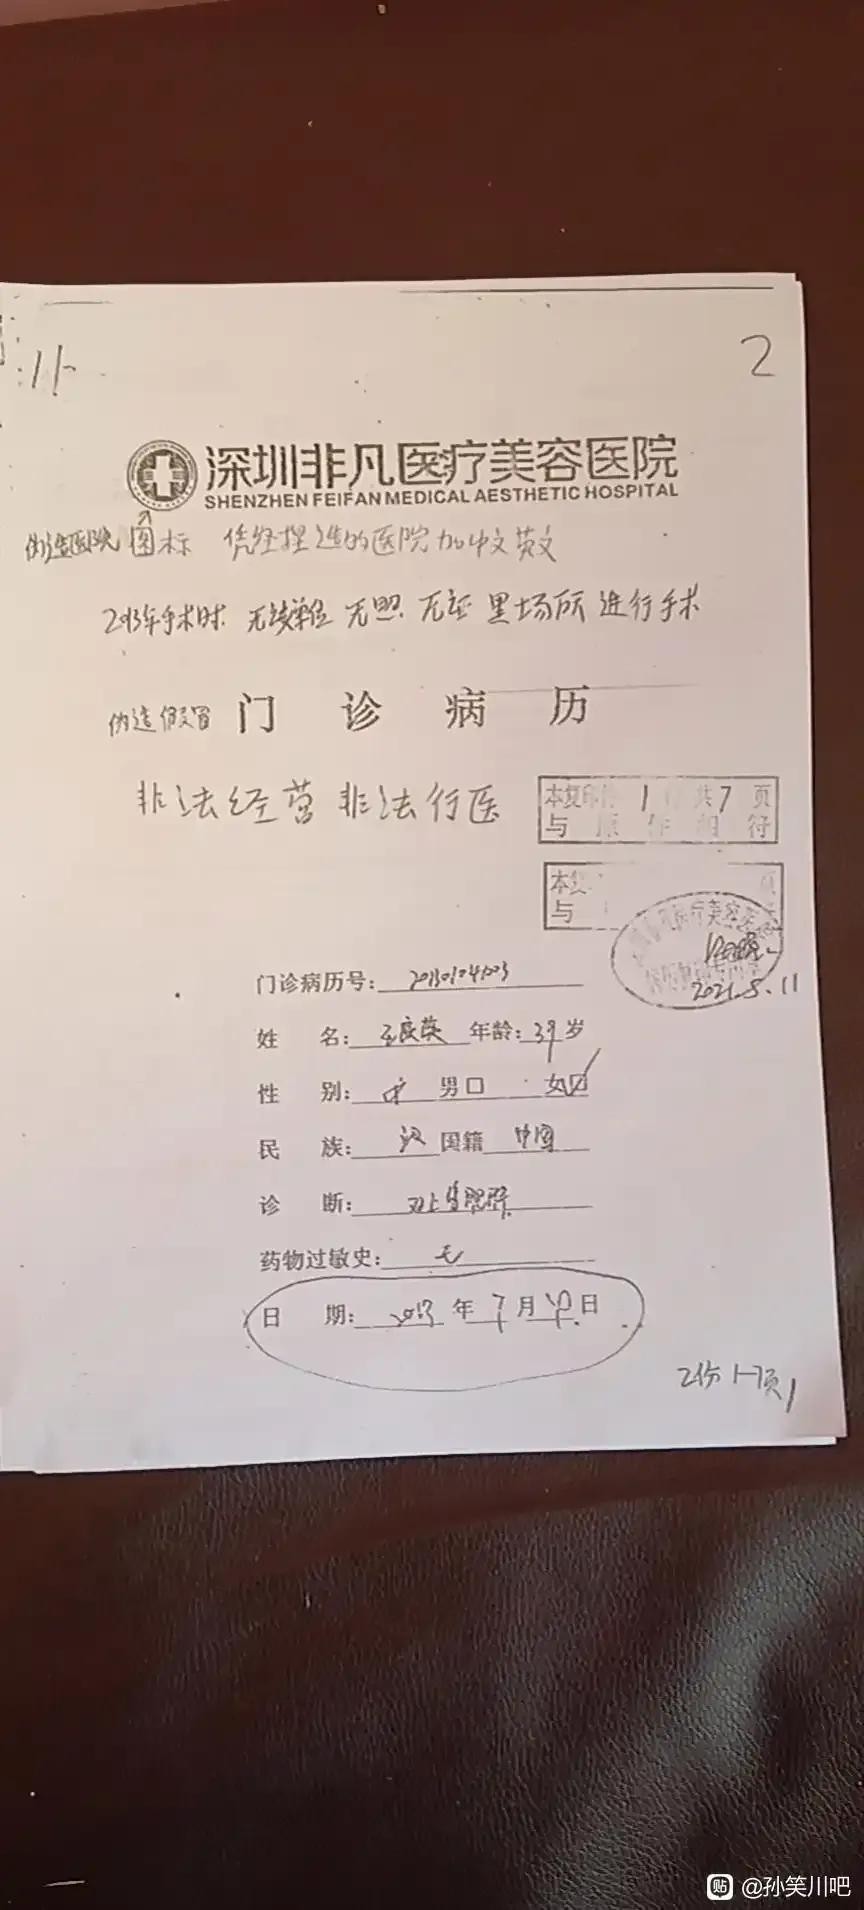 2
深圳非凡医疗美容医院
SHENZHEN FEIFAN MEDICAL AESTHETIC HOSPITAL
伪造医院图标 凭经捏造的医院加中文英文
手术时 无 单位 无照 无证 黑场所 进行手术
伪造假冒 门诊病历
非法经营 非法行医
本复印件 1 共 7 页
与原件相符
本复
与
2021.5.11
门诊病历号:
姓名: 年龄: 39 岁
性别: 男口 女口
民族: 汉 国籍 中国
诊断:
药物过敏史: 无
日期: 2013 年 7 月 日
2份 1-7页
贴 @孙笑川吧